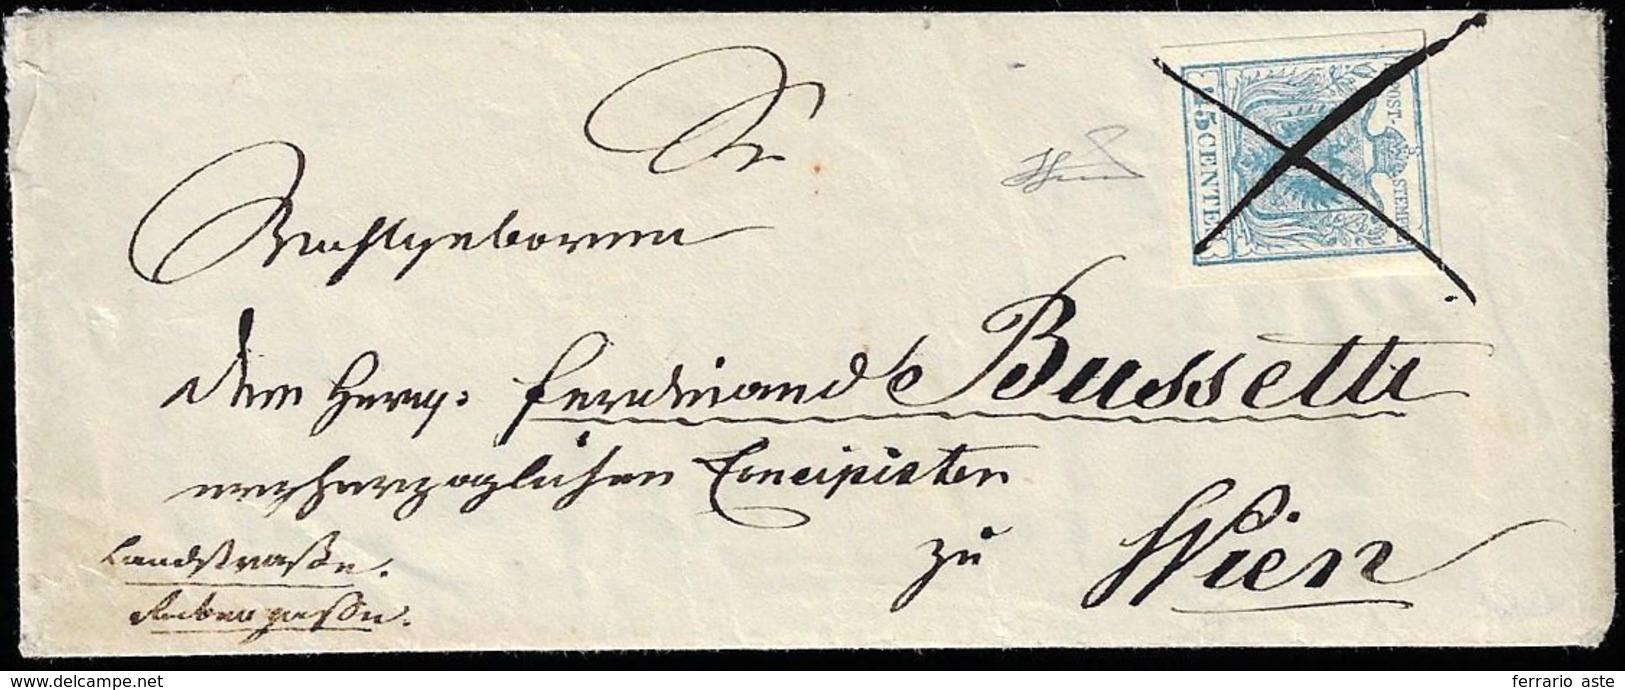 Sr
Wohlgeboren
dem Herrn: Ferdinand Bussetti
erzherzoglichen Concipisten
zu Wien
Landstraße.
gasse.
POST-
STEMPEL
25 CENTES
delcampe.net
ferrario aste